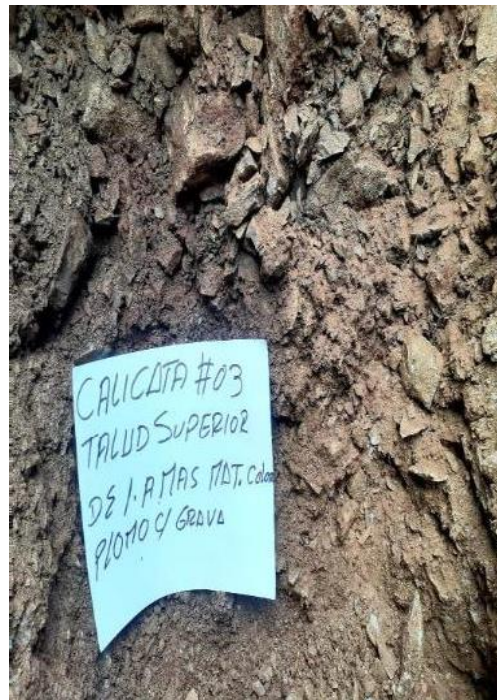 CALICATA #03
TALUD SUPERIOR
DE 1. A MAS MAT. Color
PLOMO C/ GRAVA